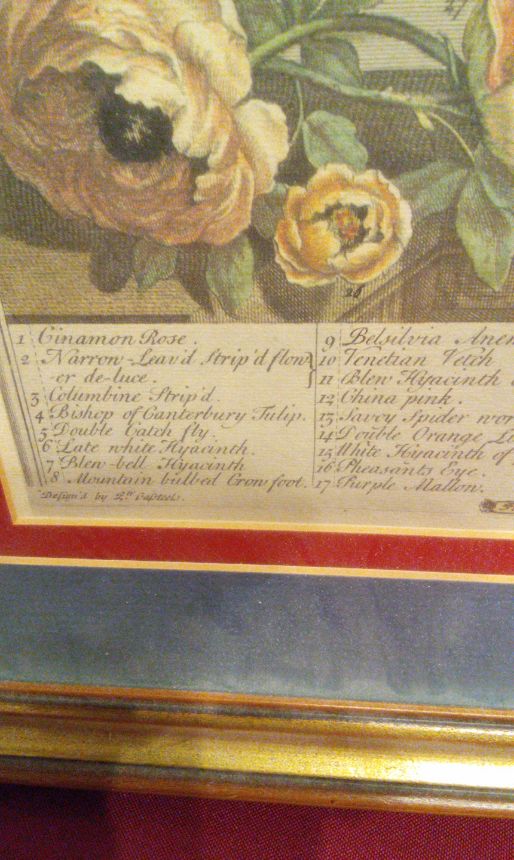 27
28
1 Cinamon Rose.
2 Narrow-Leav'd Strip'd flow
er de-luce.
3 Columbine Strip'd.
4 Bishop of Canterbury Tulip.
5 Double Catch fly.
6 Late white Hyacinth.
7 Blew-bell Hyacinth
8 Mountain bulbed Crow foot.
Design'd by Pr. Casteels.
9 Belsilvia Anem
10 Venetian Vetch
11 Blew Hyacinth
12 China pink.
13 Savoy Spider wor
14 Double Orange
15 White Hyacinth of
16 Pheasants Eye.
17 Purple Mallow.